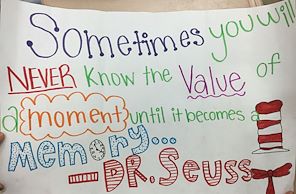 Sometimes you will
NEVER Know the Value of
a moment until it becomes a
memory...
- DR. Seuss